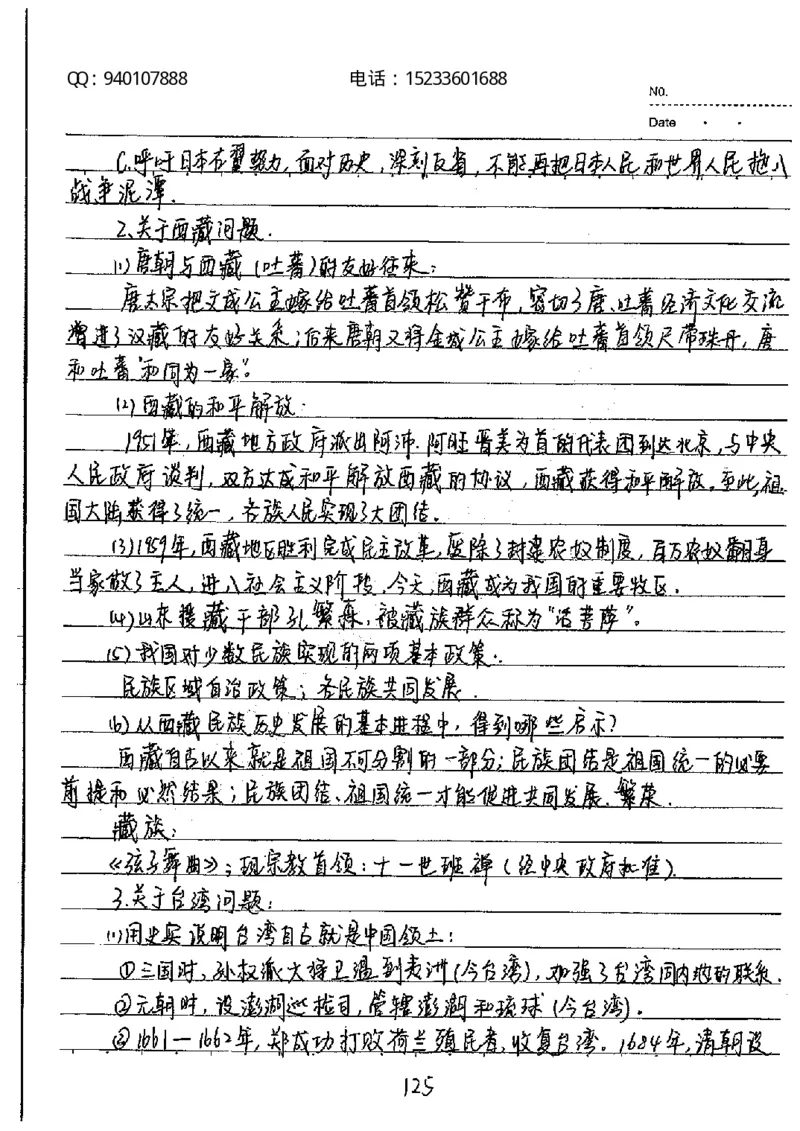 QQ：940107888 电话：15233601688
NO.
Date
C.呼吁日本右翼努力，面对历史，深刻反省，不能再把日本人民和世界人民拖入
战争泥潭.
2.关于西藏问题.
(1)唐朝与西藏(吐蕃)的友好往来：
唐太宗把文成公主嫁给吐蕃首领松赞干布，密切了唐、吐蕃经济文化交流
增进了汉藏的友好关系；后来唐朝又将金城公主嫁给吐蕃首领尺带珠丹，唐
和吐蕃“和同为一家”。
(2)西藏的和平解放：
1951年，西藏地方政府派出阿沛·阿旺晋美为首的代表团到达北京，与中央
人民政府谈判，双方达成和平解放西藏的协议，西藏获得和平解放。至此，祖
国大陆获得了统一，各族人民实现了大团结。
(3)1959年，西藏地区胜利完成民主改革，废除了封建农奴制度，百万农奴翻身
当家做了主人，进入社会主义阶段.今天，西藏成为我国的重要牧区.
(4)山东援藏干部孔繁森，被藏族群众称为“活菩萨”。
(5)我国对少数民族实现的两项基本政策：
民族区域自治政策；各民族共同发展.
(6)从西藏民族历史发展的基本进程中，得到哪些启示？
西藏自古以来就是祖国不可分割的一部分；民族团结是祖国统一的必要
前提和必然结果；民族团结、祖国统一才能促进共同发展、繁荣.
藏族：
《弦子舞曲》；现宗教首领：十一世班禅(经中央政府批准).
3.关于台湾问题：
(1)用史实说明台湾自古就是中国领土：
①三国时，孙权派大将卫温到夷洲(今台湾)，加强了台湾同内地的联系.
②元朝时，设澎湖巡检司，管辖澎湖和琉球(今台湾)。
③1661—1662年，郑成功打败荷兰殖民者，收复台湾。1684年，清朝设
125